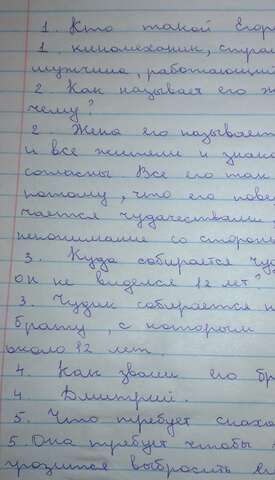 1. Кто такой Егор
1. киномеханик, стра
мужчина, работающий
2. Как называет его ж
чему?
2. Жена его называет
и все жители и знак
согласны. Все его так
потому, что его пове
чается чудачествами
непонимание со сторон
3. Куда собирается чуд
он не виделся 12 лет?
3. Чудик собирается к
брату, с которым
около 12 лет.
4. Как звали его бр
4. Дмитрий.
5. Что требует снаха
5. Она требует чтобы
грозится выбросить